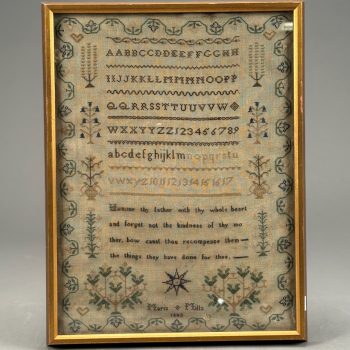 AABBCCDDEEFFGGHH
IIJJKKLLMMNNOOPP
QQRRSSTTUUVVW
WXXYYZZ123456789
abcdefghijklmnopqrstu
vwxyz1011121314151617
Honour thy father with thy whole heart
and forget not the kindness of thy mo
ther, how canst thou recompense them
the things they have done for thee,